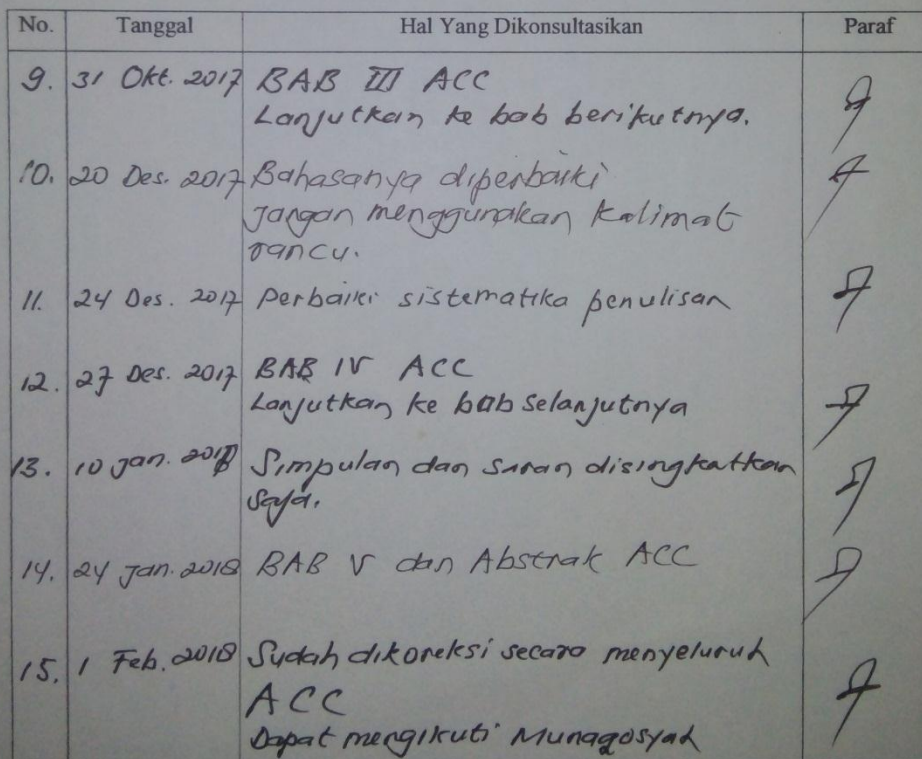 No. Tanggal Hal Yang Dikonsultasikan Paraf
9. 31 Okt. 2017 BAB III ACC
Lanjutkan ke bab berikutnya.
10. 20 Des. 2017 Bahasanya diperbaiki
Jangan menggunakan kalimat
rancu.
11. 24 Des. 2017 Perbaiki sistematika penulisan
12. 27 Des. 2017 BAB IV ACC
Lanjutkan ke bab selanjutnya
13. 10 Jan. 2018 Simpulan dan saran disingkatkan
saja.
14. 24 Jan. 2018 BAB V dan Abstrak ACC
15. 1 Feb. 2018 Sudah dikoreksi secara menyeluruh
ACC
Dapat mengikuti Munaqosyah